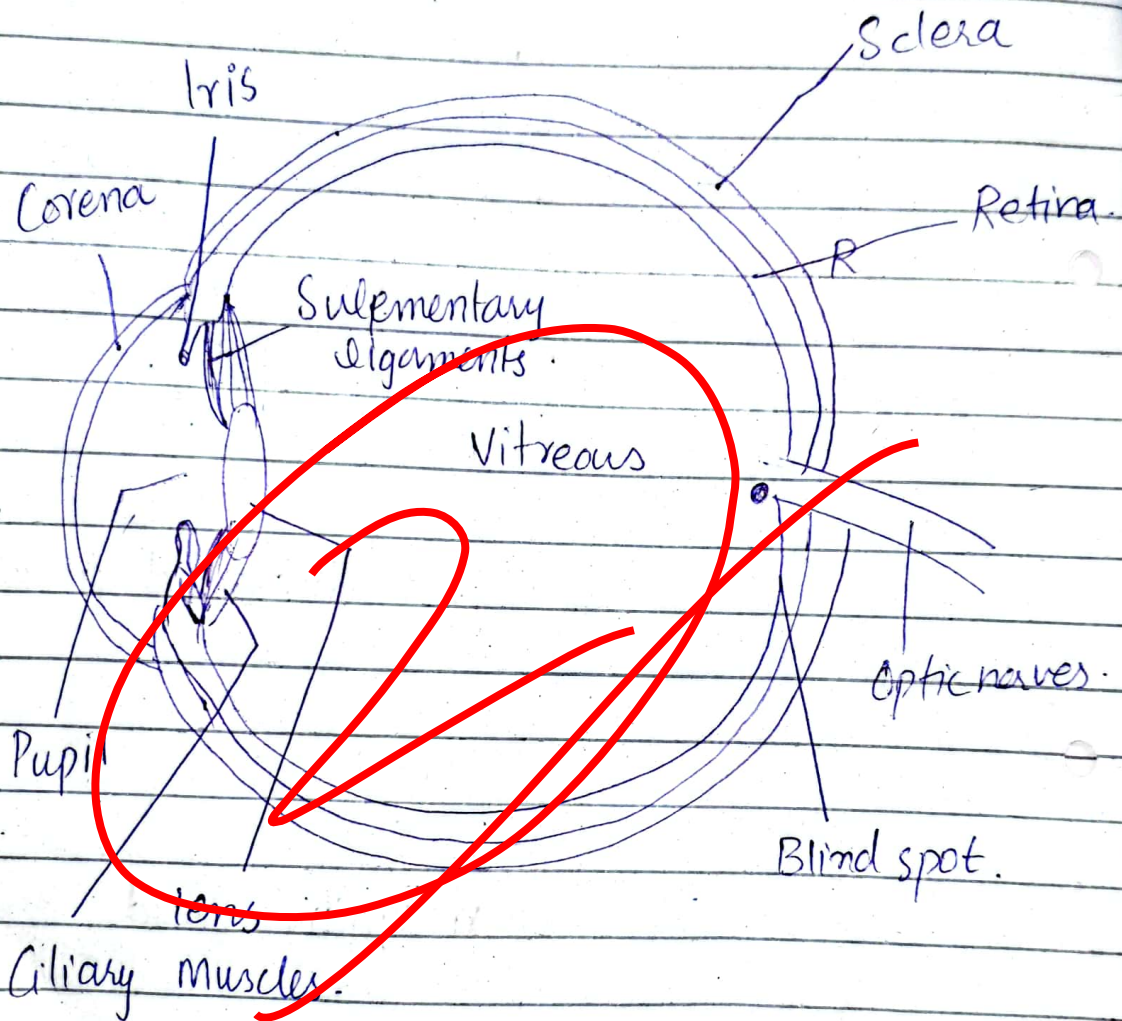 Sclera
Iris
Corena
Retina.
R
Sulpmentary
ligaments.
Vitreous
Optic nerves.
Pupil
Blind spot.
lens
Ciliary Muscles.
2